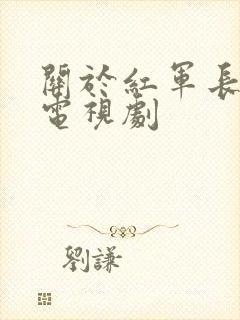 關於紅軍長
電視劇
劉謙